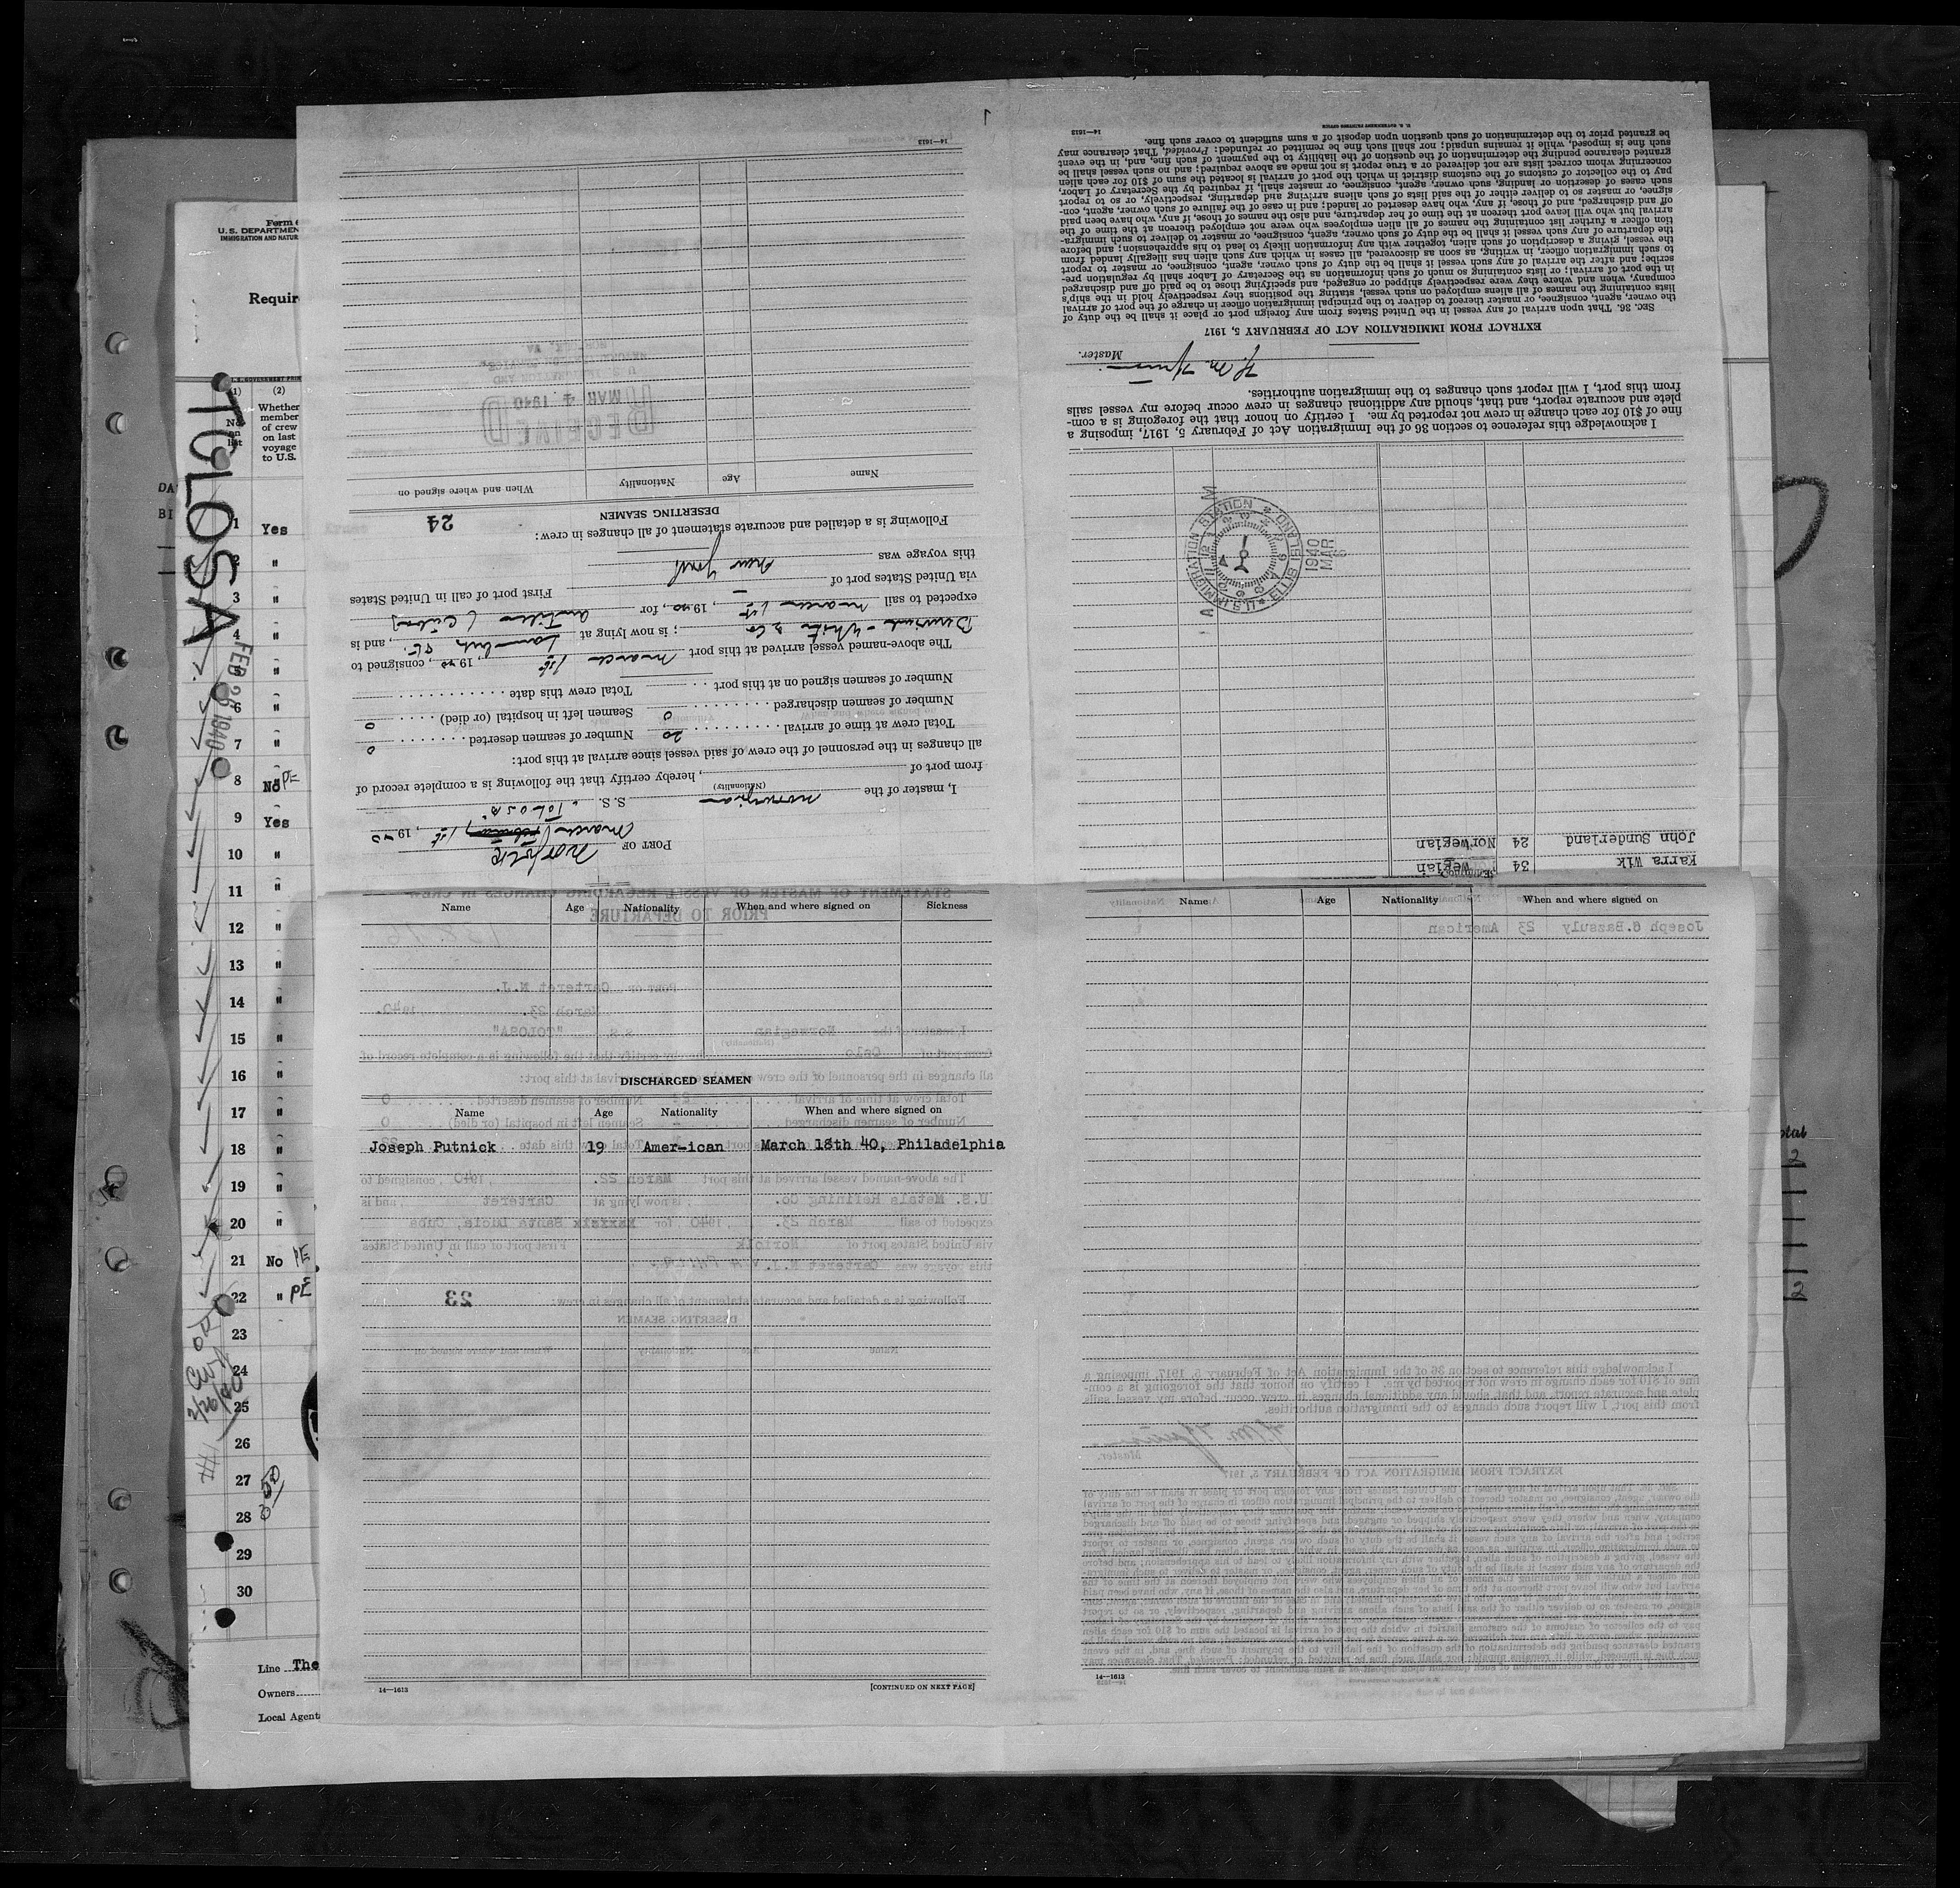 Form
U.S. DEPARTMEN
IMMIGRATION AND NATUR
Requir
TOLOSA
FEB 26 1940
(1)
(2)
No. on list
Whether
member
of crew
on last
voyage
to U.S.
1 Yes
2 "
3 "
4 "
6 "
7 "
8 No PE
9 Yes
10 "
11 "
12 "
13 "
14 "
15 "
16 "
17 "
18 "
19 "
20 "
21 No PE
22 " PE
23
24
25
26
27
28
29
30
Line The
Owners
Local Agent
PORT OF Norfolk
March 1st, 1940
I, master of the Norwegian S. S. "Tolosa"
(Nationality)
from port of , hereby certify that the following is a complete record of
all changes in the personnel of the crew of said vessel since arrival at this port:
Total crew at time of arrival 20 Number of seamen deserted 0
Number of seamen discharged 0 Seamen left in hospital (or died) 0
Number of seamen signed on at this port Total crew this date
The above-named vessel arrived at this port March 1st, 1940, consigned to
Berwind-White & Co; is now lying at Lamberts Pt., and is
expected to sail March 1st, 1940, for Antilla (Cuba)
via United States port of — First port of call in United States
this voyage was New York
Following is a detailed and accurate statement of all changes in crew: 24
DESERTING SEAMEN
Name Age Nationality When and where signed on
RECEIVED
MAR 4 1940
U. S. IMMIGRATION AND
NATURALIZATION SERVICE
NORFOLK, VA
14—1613
Karra Wik 34 Norwegian
John Sunderland 24 Norwegian
U.S. IMMIGRATION STATION ELLIS ISLAND
1940 MAR 6 A M
I acknowledge this reference to section 36 of the Immigration Act of February 5, 1917, imposing a
fine of $10 for each change in crew not reported by me. I certify on honor that the foregoing is a com-
plete and accurate report, and that, should any additional changes in crew occur before my vessel sails
from this port, I will report such changes to the immigration authorities.
Master.
EXTRACT FROM IMMIGRATION ACT OF FEBRUARY 5, 1917
SEC. 36. That upon arrival of any vessel in the United States from any foreign port or place it shall be the duty of
the owner, agent, consignee, or master thereof to deliver to the principal immigration officer in charge of the port of arrival
lists containing the names of all aliens employed on such vessel, stating the positions they respectively hold in the ship's
company, when and where they were respectively shipped or engaged, and specifying those to be paid off and discharged
in the port of arrival; or lists containing so much of such information as the Secretary of Labor shall by regulation pre-
scribe; and after the arrival of any such vessel it shall be the duty of such owner, agent, consignee, or master to report
to such immigration officer, in writing, as soon as discovered, all cases in which any such alien has illegally landed from
the vessel, giving a description of such alien, together with any information likely to lead to his apprehension; and before
the departure of any such vessel it shall be the duty of such owner, agent, consignee, or master to deliver to such immigra-
tion officer a further list containing the names of all alien employees who were not employed thereon at the time of the
arrival but who will leave port thereon at the time of her departure, and also the names of those, if any, who have been paid
off and discharged, and of those, if any, who have deserted or landed; and in case of the failure of such owner, agent, con-
signee, or master so to deliver either of the said lists of such aliens arriving and departing, respectively, or so to report
such cases of desertion or landing, such owner, agent, consignee, or master, shall, if required by the Secretary of Labor,
pay to the collector of customs of the customs district in which the port of arrival is located the sum of $10 for each alien
concerning whom correct lists are not delivered or a true report is not made as above required; and no such vessel shall be
granted clearance pending the determination of the question of the liability to the payment of such fine, and, in the event
such fine is imposed, while it remains unpaid; nor shall such fine be remitted or refunded: Provided, That clearance may
be granted prior to the determination of such question upon deposit of a sum sufficient to cover such fine.
14—1613 U. S. GOVERNMENT PRINTING OFFICE
Name Age Nationality When and where signed on Sickness
DISCHARGED SEAMEN
Name Age Nationality When and where signed on
Joseph Putnick 19 Amer-ican March 18th 40, Philadelphia
14—1613 [CONTINUED ON NEXT PAGE]
Name Age Nationality When and where signed on
14—1613
STATEMENT OF MASTER OF VESSEL REGARDING CHANGES IN CREW
PRIOR TO DEPARTURE
PORT OF Carteret N.J.
March 23. 1940.
I, master of the Norwegian S. S. "TOLOSA"
from port of Oslo
March 22. , 1940, consigned to
U.S. Metals Refining Co. ; is now lying at Carteret , and is
expected to sail March 23. , 1940, for Santa Lucia, Cuba
via United States port of Norfolk First port of call in United States
this voyage was Carteret N.J.
Following is a detailed and accurate statement of all changes in crew: 23
DESERTING SEAMEN
Joseph G.Bazsuly 23 American